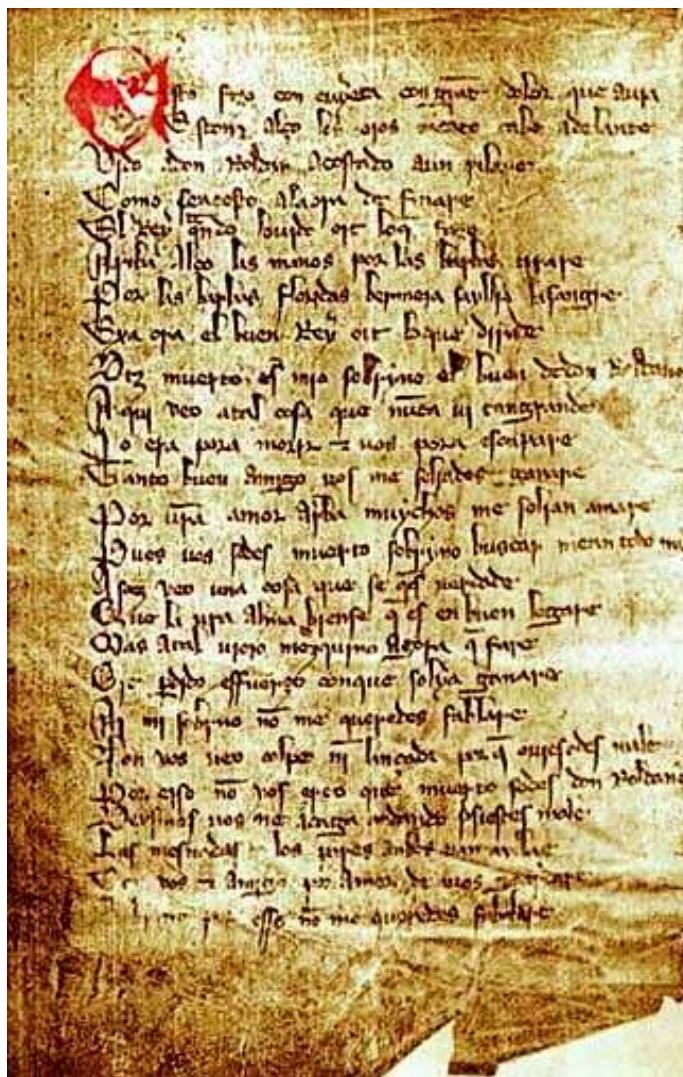 esto fizo con cuyeta con grãt dolor que auia
Estonz alço los ojos cato cabo adelante
Vido a don Roldan acostado a un pilare
Como se acosto a la ora de finare
El Rey quãdo lo uido oit lo que faze
Arriba alço las manos por las barbas tirare
Por las barbas floridas bermeja sayllia la sangre
Exa ora el buen Rey oit lo que dirade
Diz muerto es mio sobrino el buen de don Roldane
Aqui veo atal cosa que nũca ui tan grande
Jo era pora morir e uos pora escapare
Tanto buen amigo uos me soliades ganare
Por ura amor arriba muychos me solian amare
Pues uos sodes muerto sobrino buscar mean todo mal
Asaz veo una cosa que se q̃ es uerdade
Que la ura alma bien se q̃ es en buen logare
Mas atal uiejo mezquino agora q̃ fare
Oie perdido esfuerço con que solia ganare
Ai mi sobrino nõ me queredes fablare
Non uos ueo colpe nĩ lançada por q̃ ouiesedes male
Por esso nõ vos creo que muerto sodes don Roldane
uos male
Las mesnadas e los
vos e amigo por amor de uos
por esso nõ me queredes fablare